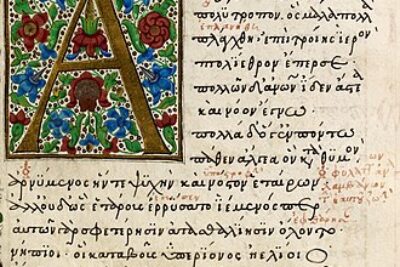 Α
πολύτροπον. ὃς μάλα πολλὰ
πλάγχθη. ἐπεὶ τροίης ἱερὸν
πτολίεθρον ἔπερσε·
πολλῶν δ' ἀνθρώπων ἴδεν ἄστεα
καὶ νόον ἔγνω·
πολλὰ δ' ὅγ' ἐν πόντῳ
πάθεν ἄλγεα ὃν κατὰ θυμὸν·
ἀρνύμενος ἥν τε ψυχὴν καὶ νόστον ἑταίρων
ἀλλ' οὐδ' ὣς ἑτάρους ἐρρύσατο ἱέμενός περ
αὐτῶν γὰρ σφετέρῃσιν ἀτασθαλίῃσιν ὄλοντο
νήπιοι. οἳ κατὰ βοῦς ὑπερίονος ἠελίοιο